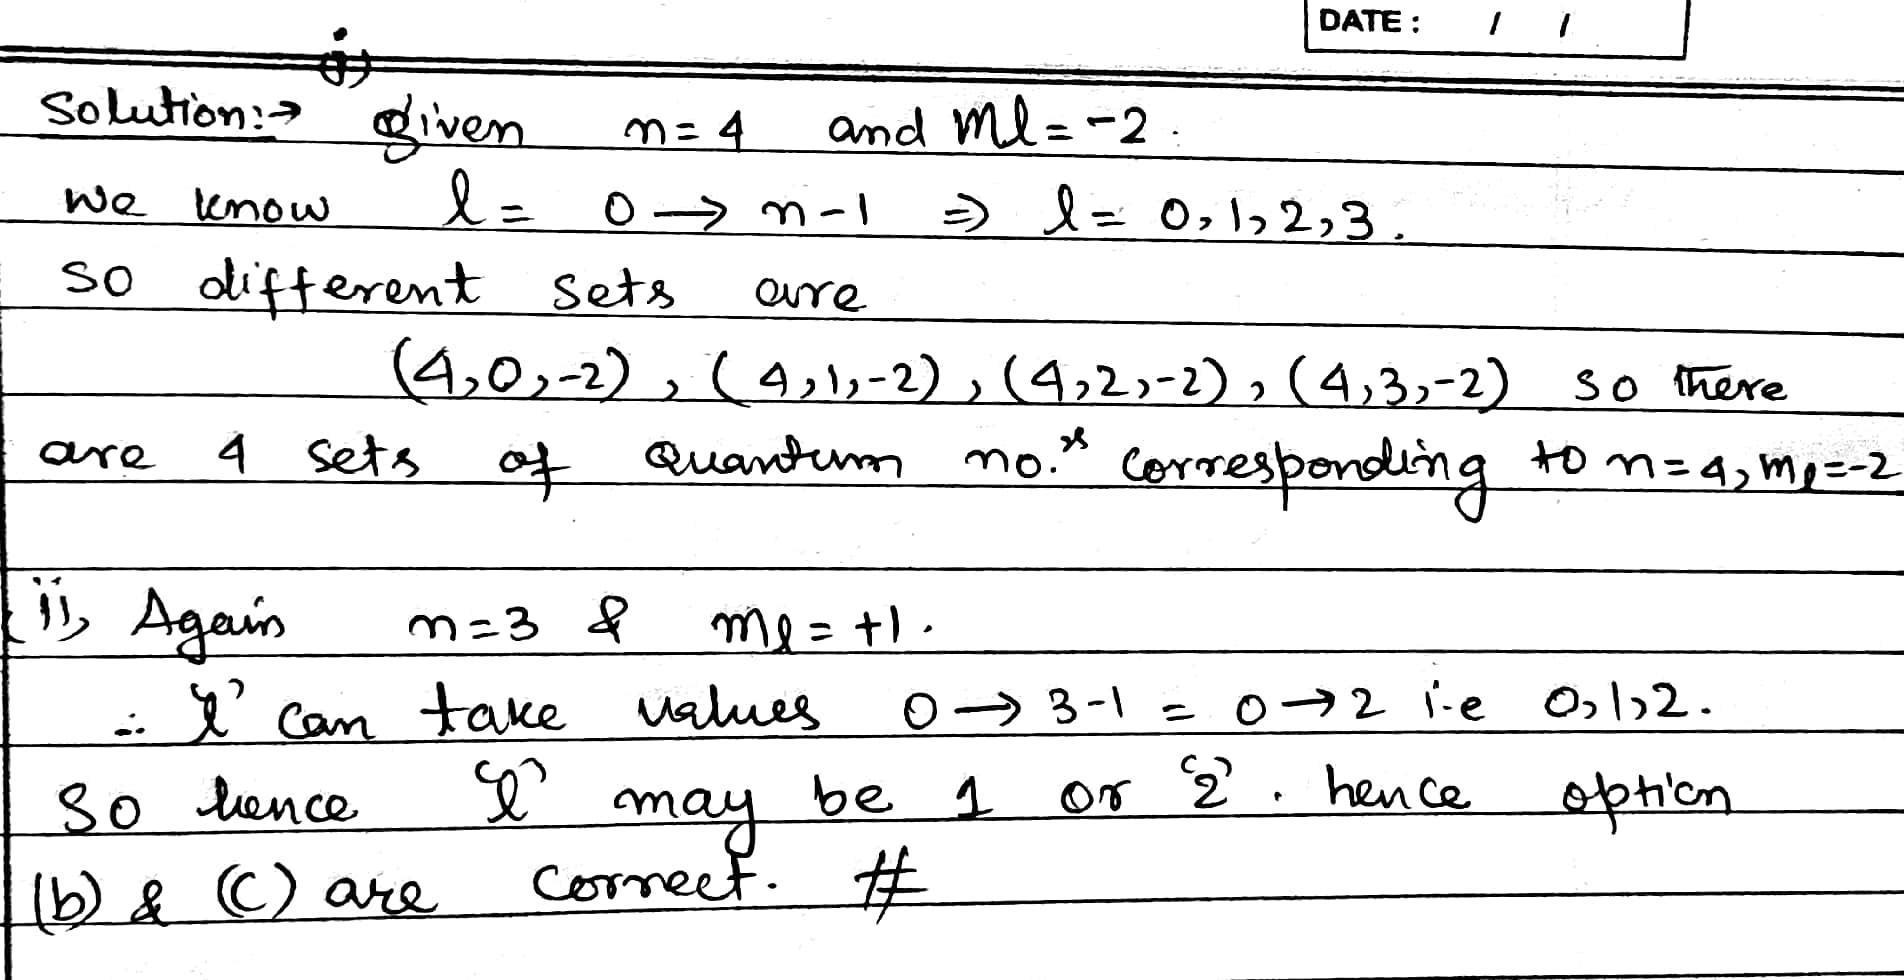 DATE: / /
i)
Solution:→ Given n=4 and ml=-2.
we know l= 0→n-1 ⇒ l= 0,1,2,3.
so different sets are
(4,0,-2), (4,1,-2), (4,2,-2), (4,3,-2) so there
are 4 sets of Quantum no.s corresponding to n=4, ml=-2
ii, Again n=3 & ml=+1.
∴ 'l' can take values 0→3-1 = 0→2 i.e 0,1,2.
So hence 'l' may be 1 or '2'. hence option
(b) & (C) are correct. #